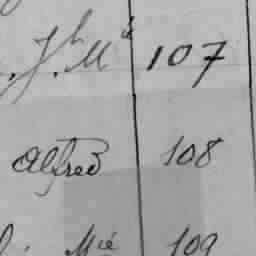 J.h M.e 107
Alfred 108
Mié 109